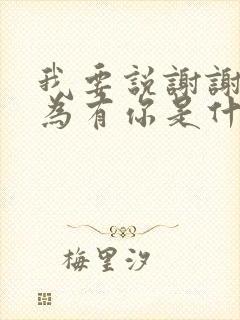 我要説謝謝
為有你是什
梅里汐